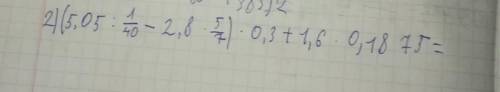 2)(5,05 : 1/40 − 2,8 · 5/7) · 0,3 + 1,6 · 0,1875 =